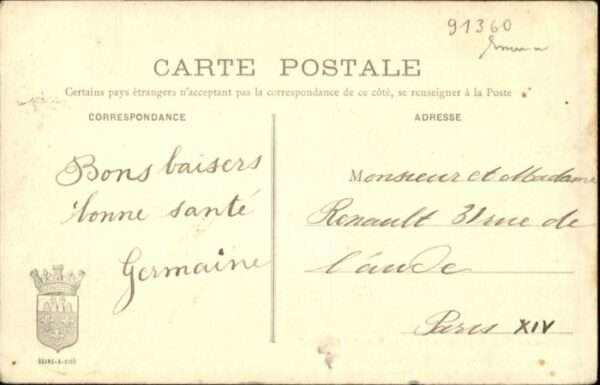 91360
CARTE POSTALE
Certains pays étrangers n'acceptant pas la correspondance de ce côté, se renseigner à la Poste
CORRESPONDANCE
ADRESSE
Bons baisers
bonne santé
Germaine
Monsieur et Madame
Renault 31 rue de
l'aude
Paris XIV